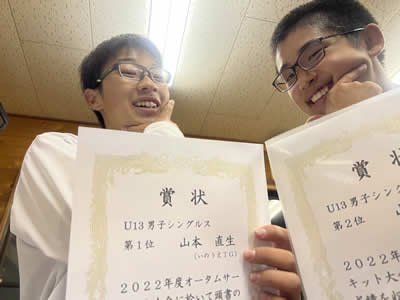 賞状
U13男子シングルス
第1位 山本 直生
(いのうえTG)
2022年度オータムサー
に於いて頭書の
賞
U13男子シング
第2位
2022年
キット大